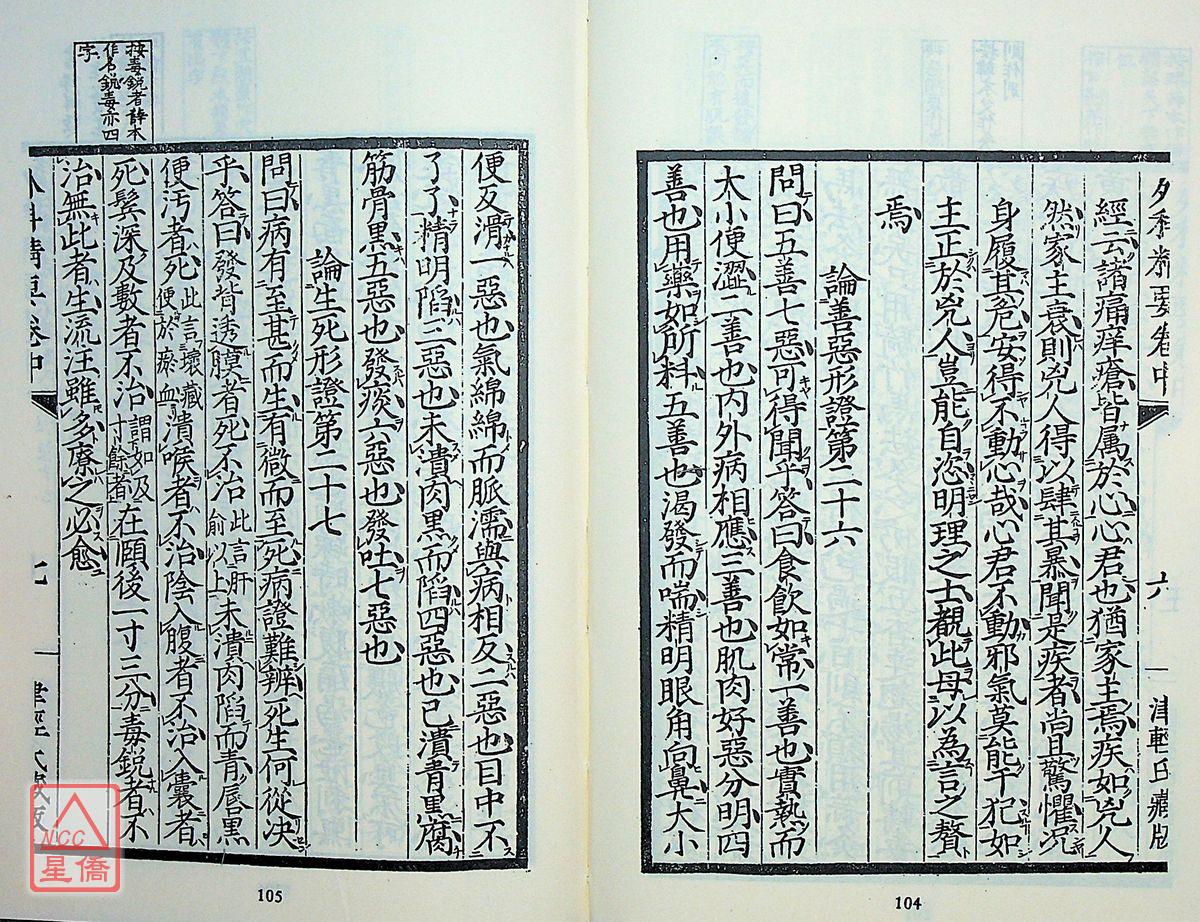 外科精要卷中
六
津輕氏藏版
經云諸痛痒瘡皆属於心心君也猶家主焉疾如兇人
然家主衰則兇人得以肆其暴聞是疾者尚且驚懼況
身履其危安得不動心哉心君不動邪氣莫能干犯如
主正於兇人豈能自恣明理之士觀此毋以為言之贅
焉
論善惡形證第二十六
問曰五善七惡可得聞乎答曰食飲如常一善也實熱而
大小便澀二善也内外病相應三善也肌肉好惡分明四
善也用藥如所料五善也渴發而喘精明眼角向鼻大小
104
便反滑一惡也氣綿綿而脈濡與病相反二惡也目中不
了了精明陷三惡也未潰肉黑而陷四惡也已潰青黑腐
筋骨黑五惡也發痰六惡也發吐七惡也
論生死形證第二十七
問曰病有至甚而生有微而至死病證難辨死生何從决
乎答曰發背透膜者死不治此言肝俞以上未潰肉陷而青唇黑
便汚者死此言壞藏便於瘀血潰喉者不治陰入腹者不治入囊者
死鬂深及數者不治謂如及寸餘者在頤後一寸三分毒銳者不
治無此者生流汪雖多療之必愈
按毒銳者薛本
作名銳毒亦四
字
外科精要卷中
七
津輕氏藏版
105
NCC
星僑